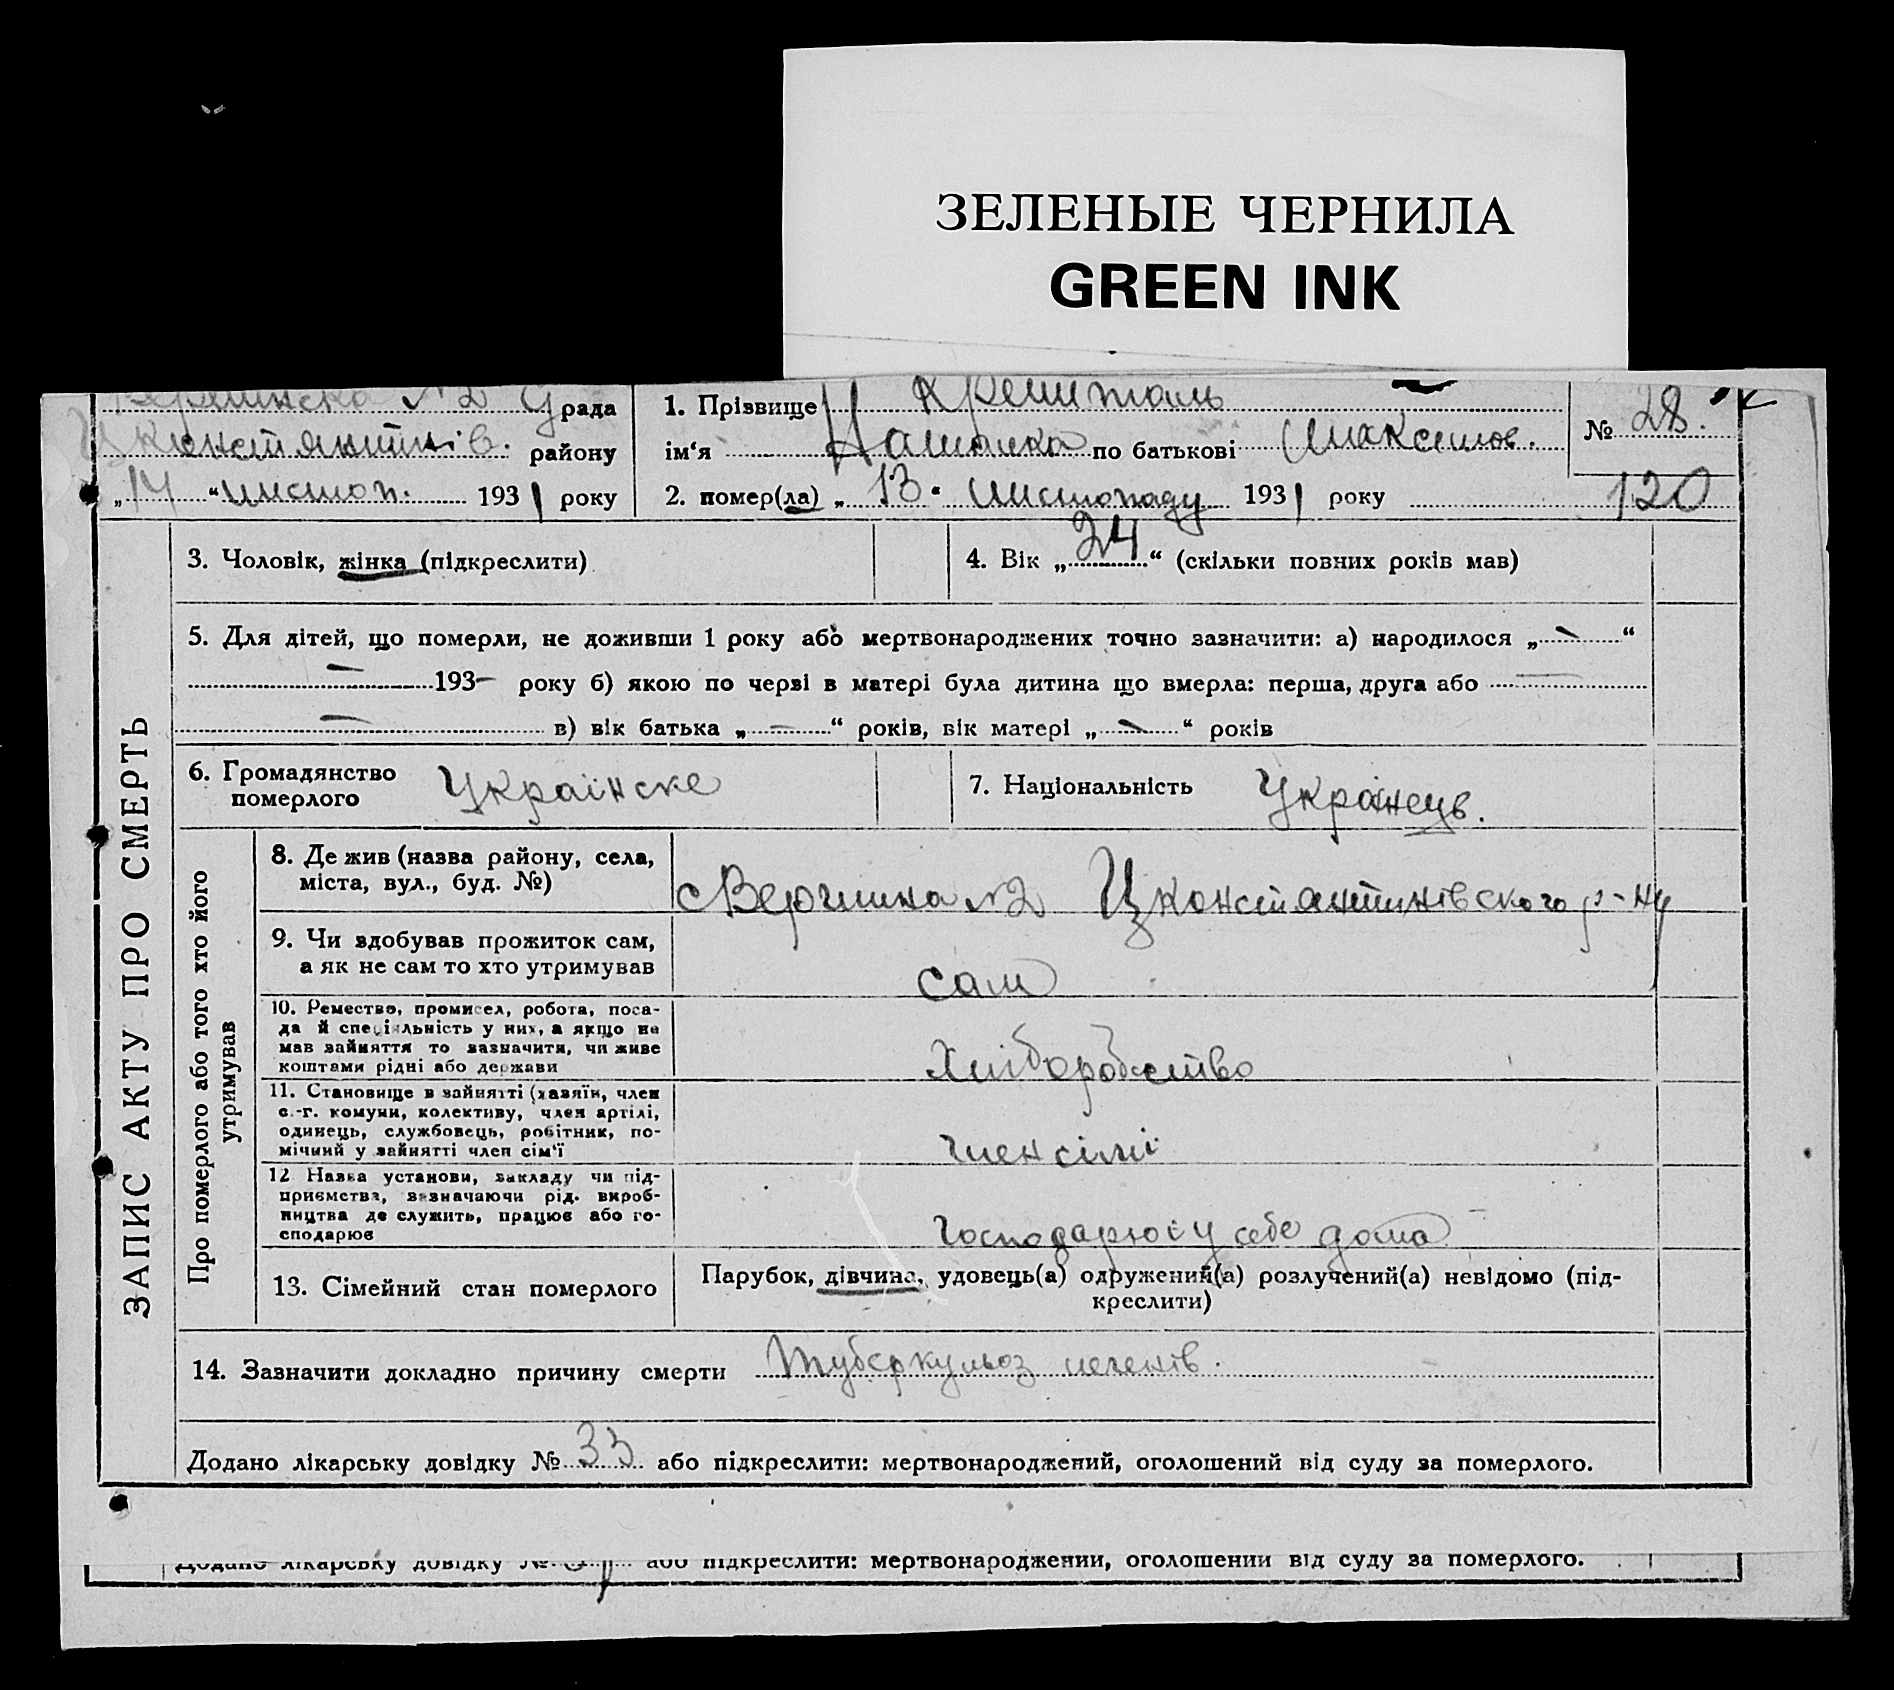 ЗЕЛЕНЫЕ ЧЕРНИЛА
GREEN INK
№2 рада
району
„14 “ листоп. 1931 року
1. Прізвище
ім‘я по батькові Максимов.
2. помер(ла) „ 13 “ листопаду 1931 року
№ 28.
120
ЗАПИС АКТУ ПРО СМЕРТЬ
3. Чоловік, жінка (підкреслити)
4. Вік „ 24 “ (скільки повних років мав)
5. Для дітей, що померли, не доживши 1 року або мертвонароджених точно зазначити: а) народилося „ – “
– 193– року б) якою по черзі в матері була дитина що вмерла: перша, друга або –
– в) вік батька „ – “ років, вік матері „ – “ років
6. Громадянство
померлого
Українске
7. Національність
Українець.
Про померлого або того хто його
утримував
8. Де жив (назва району, села,
міста, вул., буд. №)
Вершина №2 Цконстянтинівского р-ну
9. Чи здобував прожиток сам,
а як не сам то хто утримував
сам
10. Ремество, промисел, робота, поса-
да й спеціяльність у них, а якщо не
мав зайняття то зазначити, чи живе
коштами рідні або держави
Хліборобство
11. Становище в зайнятті (хазяїн, член
с.-г. комуни, колективу, член артілі,
одинець, службовець, робітник, по-
мічний у зайнятті член сім‘ї
член сімі
12 Назва установи, закладу чи під-
приємства, зазначаючи рід. вироб-
ництва де служить, працює або го-
сподарює
Господарює у себе дома
13. Сімейний стан померлого
Парубок, дівчина, удовець(а) одружений(а) розлучений(а) невідомо (під-
креслити)
14. Зазначити докладно причину смерти Туберкульоз легенів.
Додано лікарську довідку № 33 або підкреслити: мертвонароджений, оголошений від суду за померлого.
Додано лікарську довідку № або підкреслити: мертвонароджений, оголошений від суду за померлого.